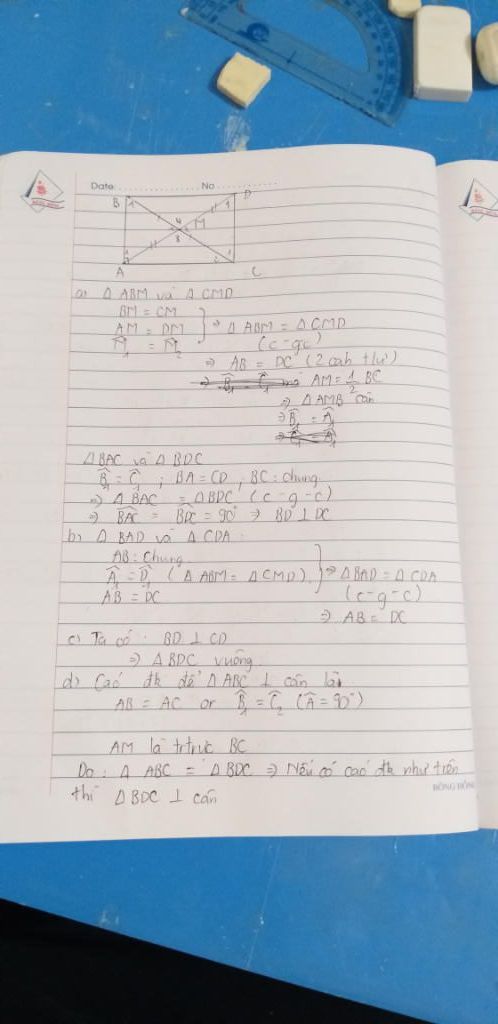 Date: .................... No ................
B 1 D 1
4 M
3
A 1 2 1 C
a) Δ ABM và Δ CMD
BM = CM
AM = DM } ⇒ Δ ABM = Δ CMD
M̂₁ = M̂₂ (c-gc)
⇒ AB = DC (2 cah t/ư)
AM = 1/2 BC
⇒ Δ AMB cân
⇒ B̂₁ = Â₁
Δ BAC và Δ BDC
B̂₁ = Ĉ₁ ; BA = CD ; BC: chung
⇒ Δ BAC = Δ BDC (c-g-c)
⇒ BAC = BDC = 90° ⇒ BD ⊥ DC
b) Δ BAD và Δ CDA:
AB: Chung
Â₁ = D̂₁ (Δ ABM = Δ CMD) } ⇒ Δ BAD = Δ CDA
AB = DC (c-g-c)
⇒ AB = DC
c) Ta có: BD ⊥ CD
⇒ Δ BDC vuông
d) Caó đk để Δ ABC ⊥ cân là
AB = AC or B̂₁ = Ĉ₂ (Â = 90°)
AM là trtrực BC
Do: Δ ABC = Δ BDC ⇒ Nếu có caó đk như trên
thì Δ BDC ⊥ cân